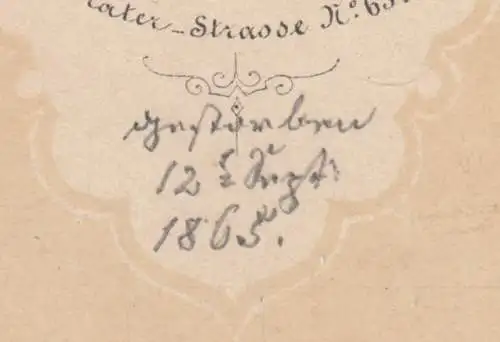 rater-Strasse No. 65
gestorben
12t Sept.
1865.